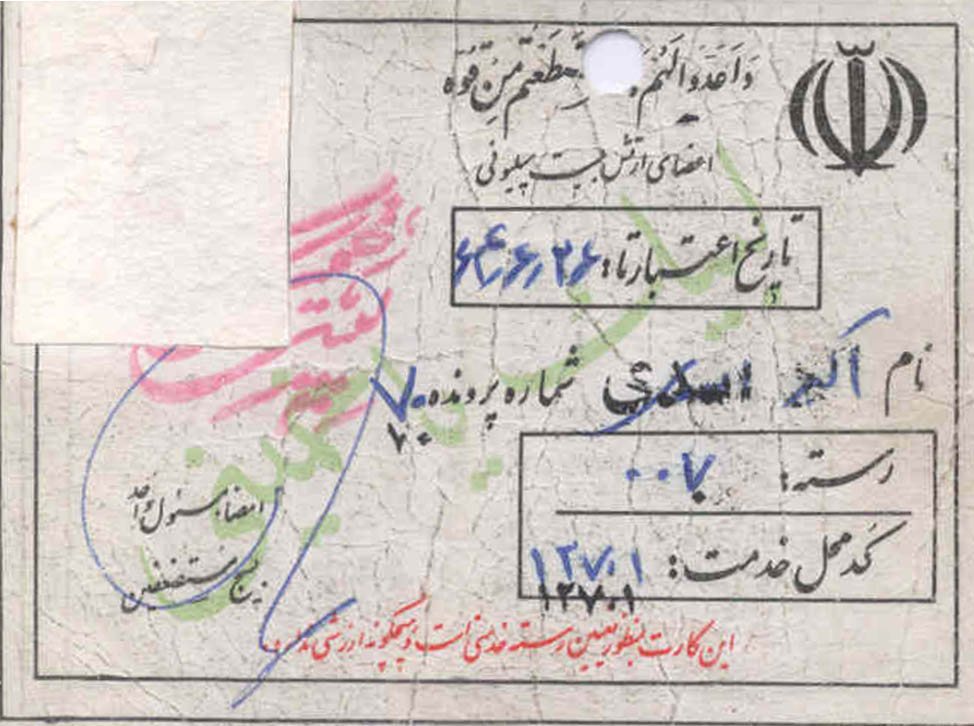 وَاَعِدّوا لَهُم مَا استَطَعتُم مِن قُوّه
اعضای ارتش بیست میلیونی
تاریخ اعتبار تا: ۶۴٫۶٫۲۶
نام اکبر اسدی شماره پرونده ۷۰
۷۰
رسته: ۰۰۷
کد محل خدمت: ۱۲۷۰۱
۱۲۷۰۱
امضاء مسئول واحد
بسیج مستضعفین
این کارت بمنظور تعیین رسته خدمتی است و هیچگونه ارزشی ندارد.